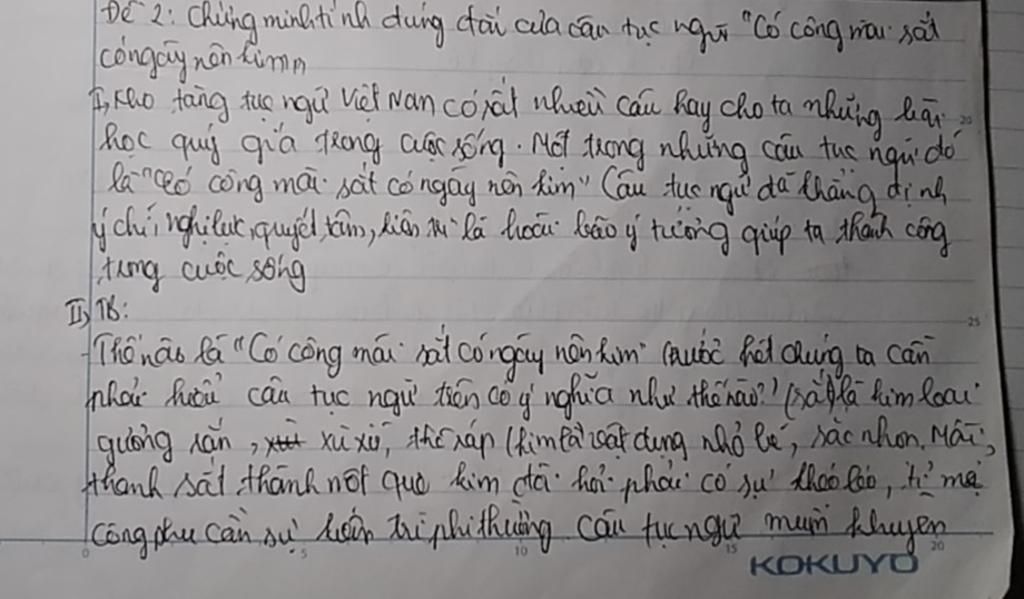 Đề 2: Chứng minh tính đúng đắn của câu tục ngữ "Có công mài sắt
có ngày nên kim"
I, Kho tàng tục ngữ Việt Nam có rất nhiều câu hay cho ta những bài
học quý giá trong cuộc sống. Một trong những câu tục ngữ đó
là "Có công mài sắt có ngày nên kim" Câu tục ngữ đã khẳng định
ý chí, nghị lực, quyết tâm, kiên trì là hoài bão ý tưởng giúp ta thành công
trong cuộc sống
II, TB:
Thế nào là "Có công mài sắt có ngày nên kim" trước hết chúng ta cần
phải hiểu câu tục ngữ trên có ý nghĩa như thế nào? (sắt) là kim loại
cứng rắn, xù xì, thô ráp (kim là vật dụng nhỏ bé, sắc nhọn. Mài
thanh sắt thành một que kim đòi hỏi phải có sự khéo léo, tỉ mỉ
công phu cần sự kiên trì phi thường câu tục ngữ muốn khuyên
KOKUYO
0 5 10 15 20
20
25